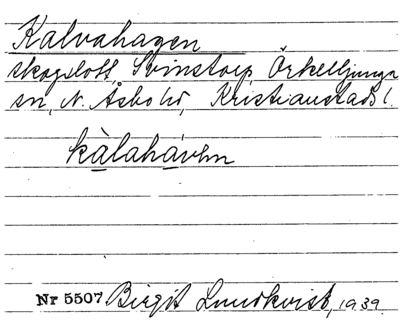 Kalvahagen
skogslott, Svinstorp, Örkelljunga
sn, N. Åsbo hd, Kristianstads l.
kàlahávhn
Nr 5507 Birgit Lundkvist, 1939